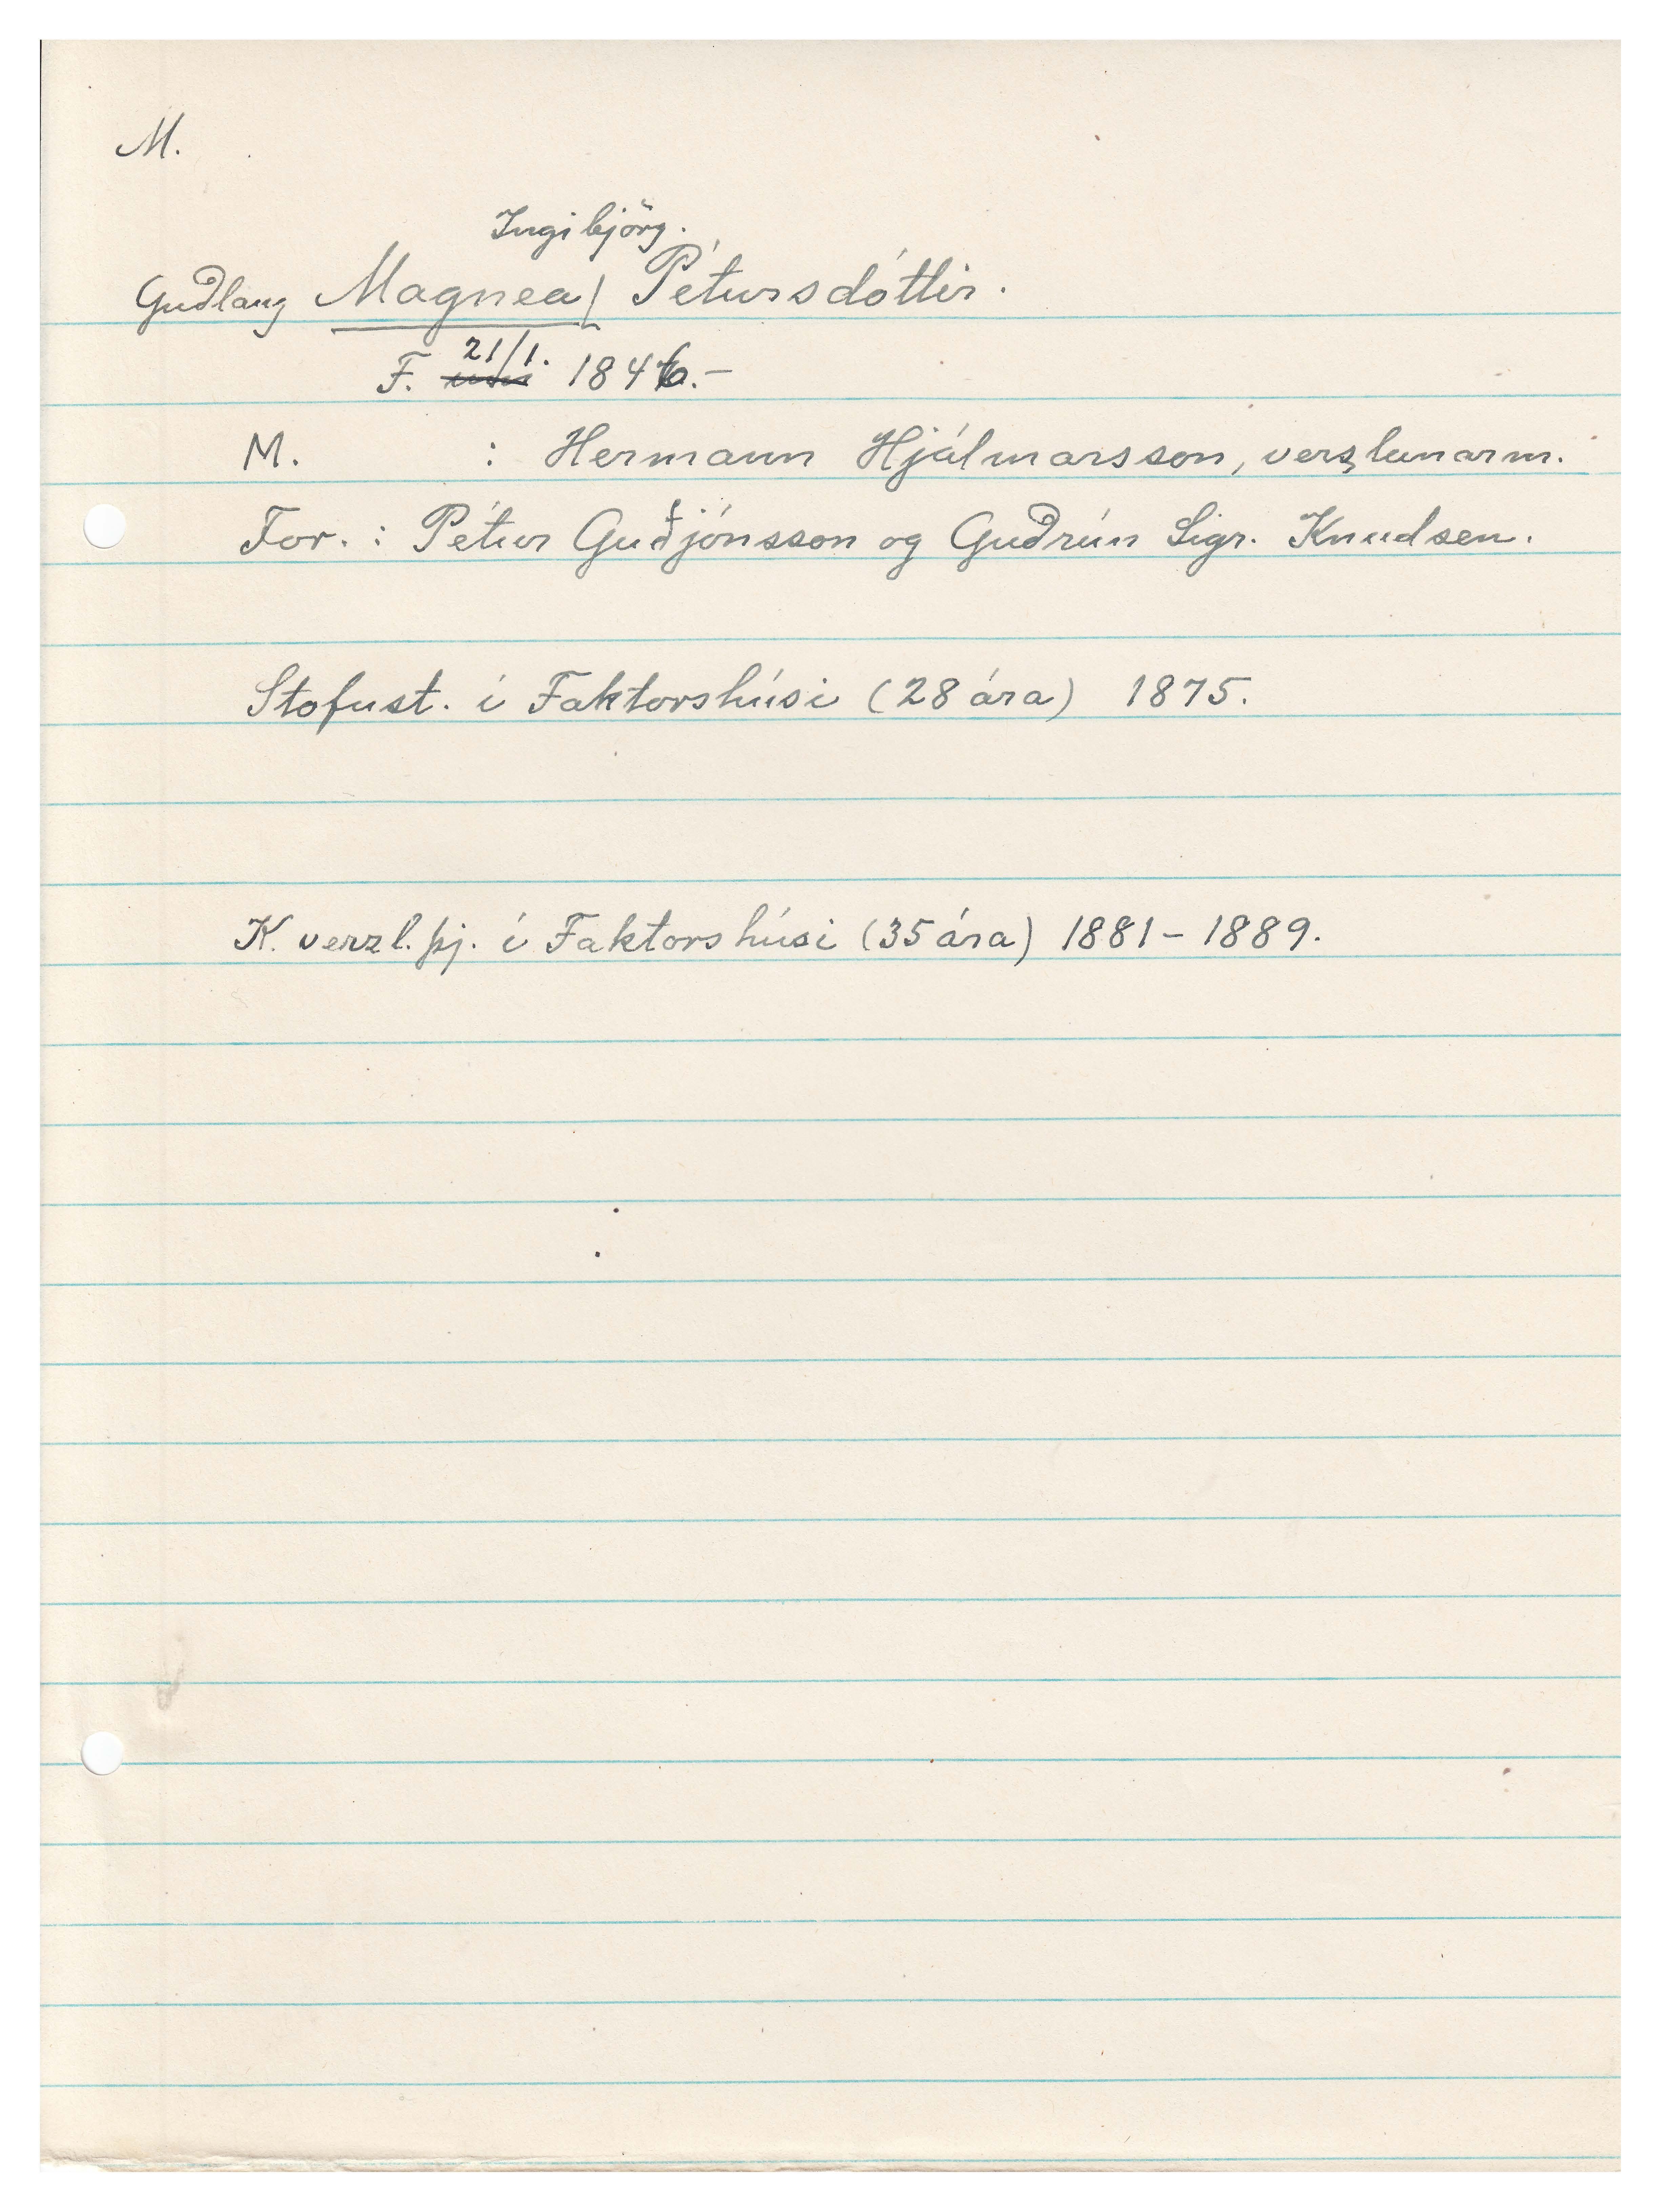 M.
Ingibjörg.
Guðlaug Magnea Pétursdóttir.
21/1.
F. 1846.-
M. : Hermann Hjálmarsson, verzlunarm.
For. : Pétur Guðjónsson og Guðrún Sigr. Knudsen.
Stofust. í Faktorshúsi (28 ára) 1875.
K. verzl.þj. í Faktorshúsi (35 ára) 1881 - 1889.